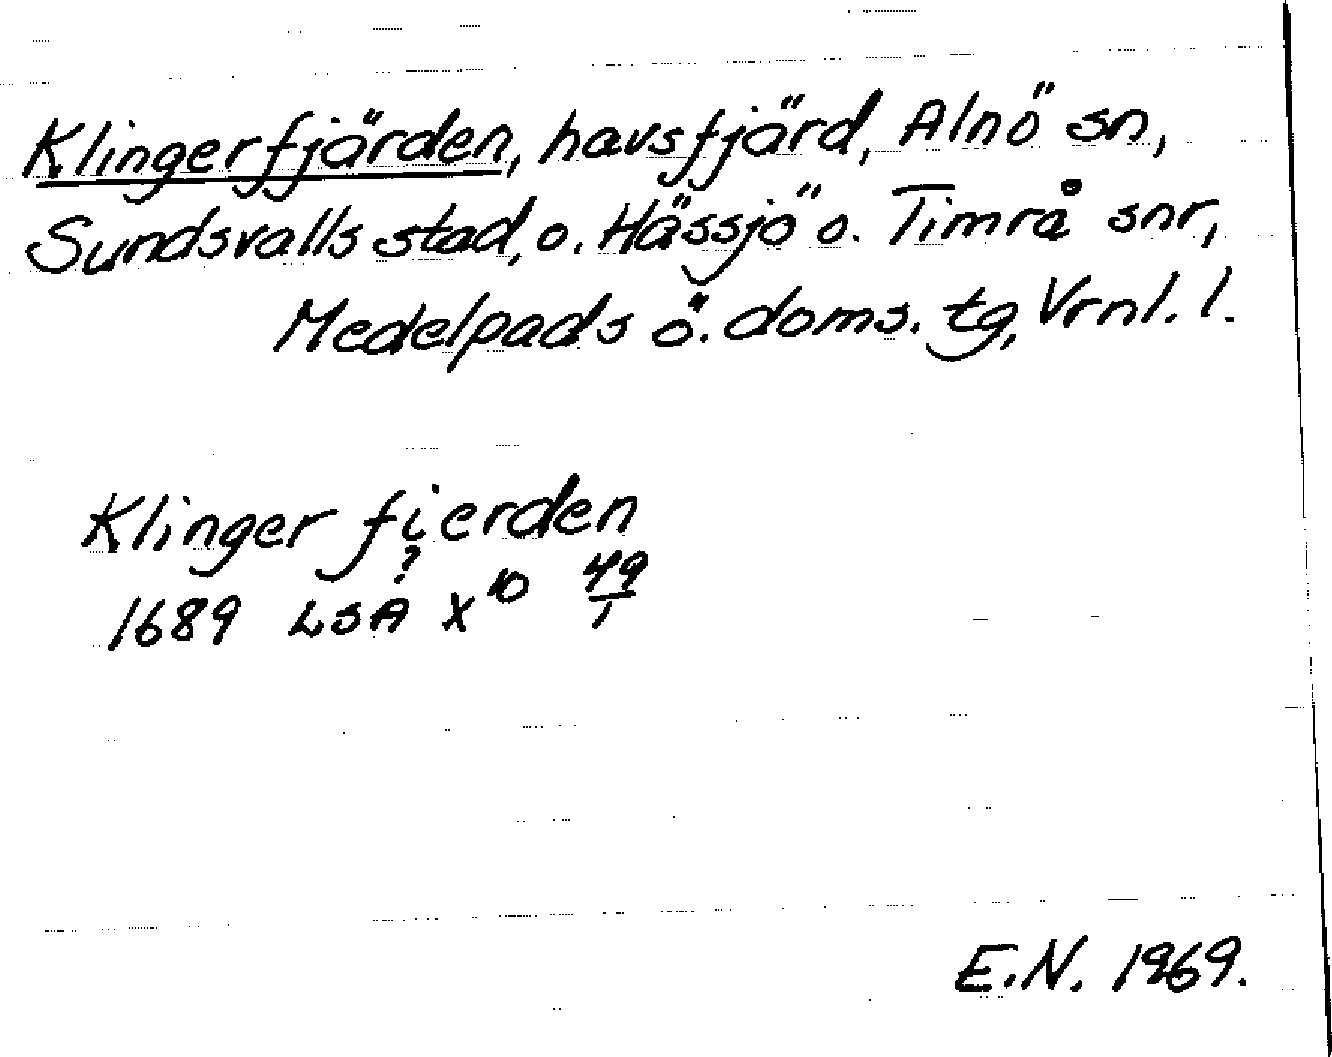 Klingerfjärden, havsfjärd, Alnö sn,
Sundsvalls stad, o. Hässjö o. Timrå snr,
Medelpads ö. doms. tg, Vrnl. l.
Klinger fierden
?
1689 LSA X¹⁰ 49/1
E.N. 1969.